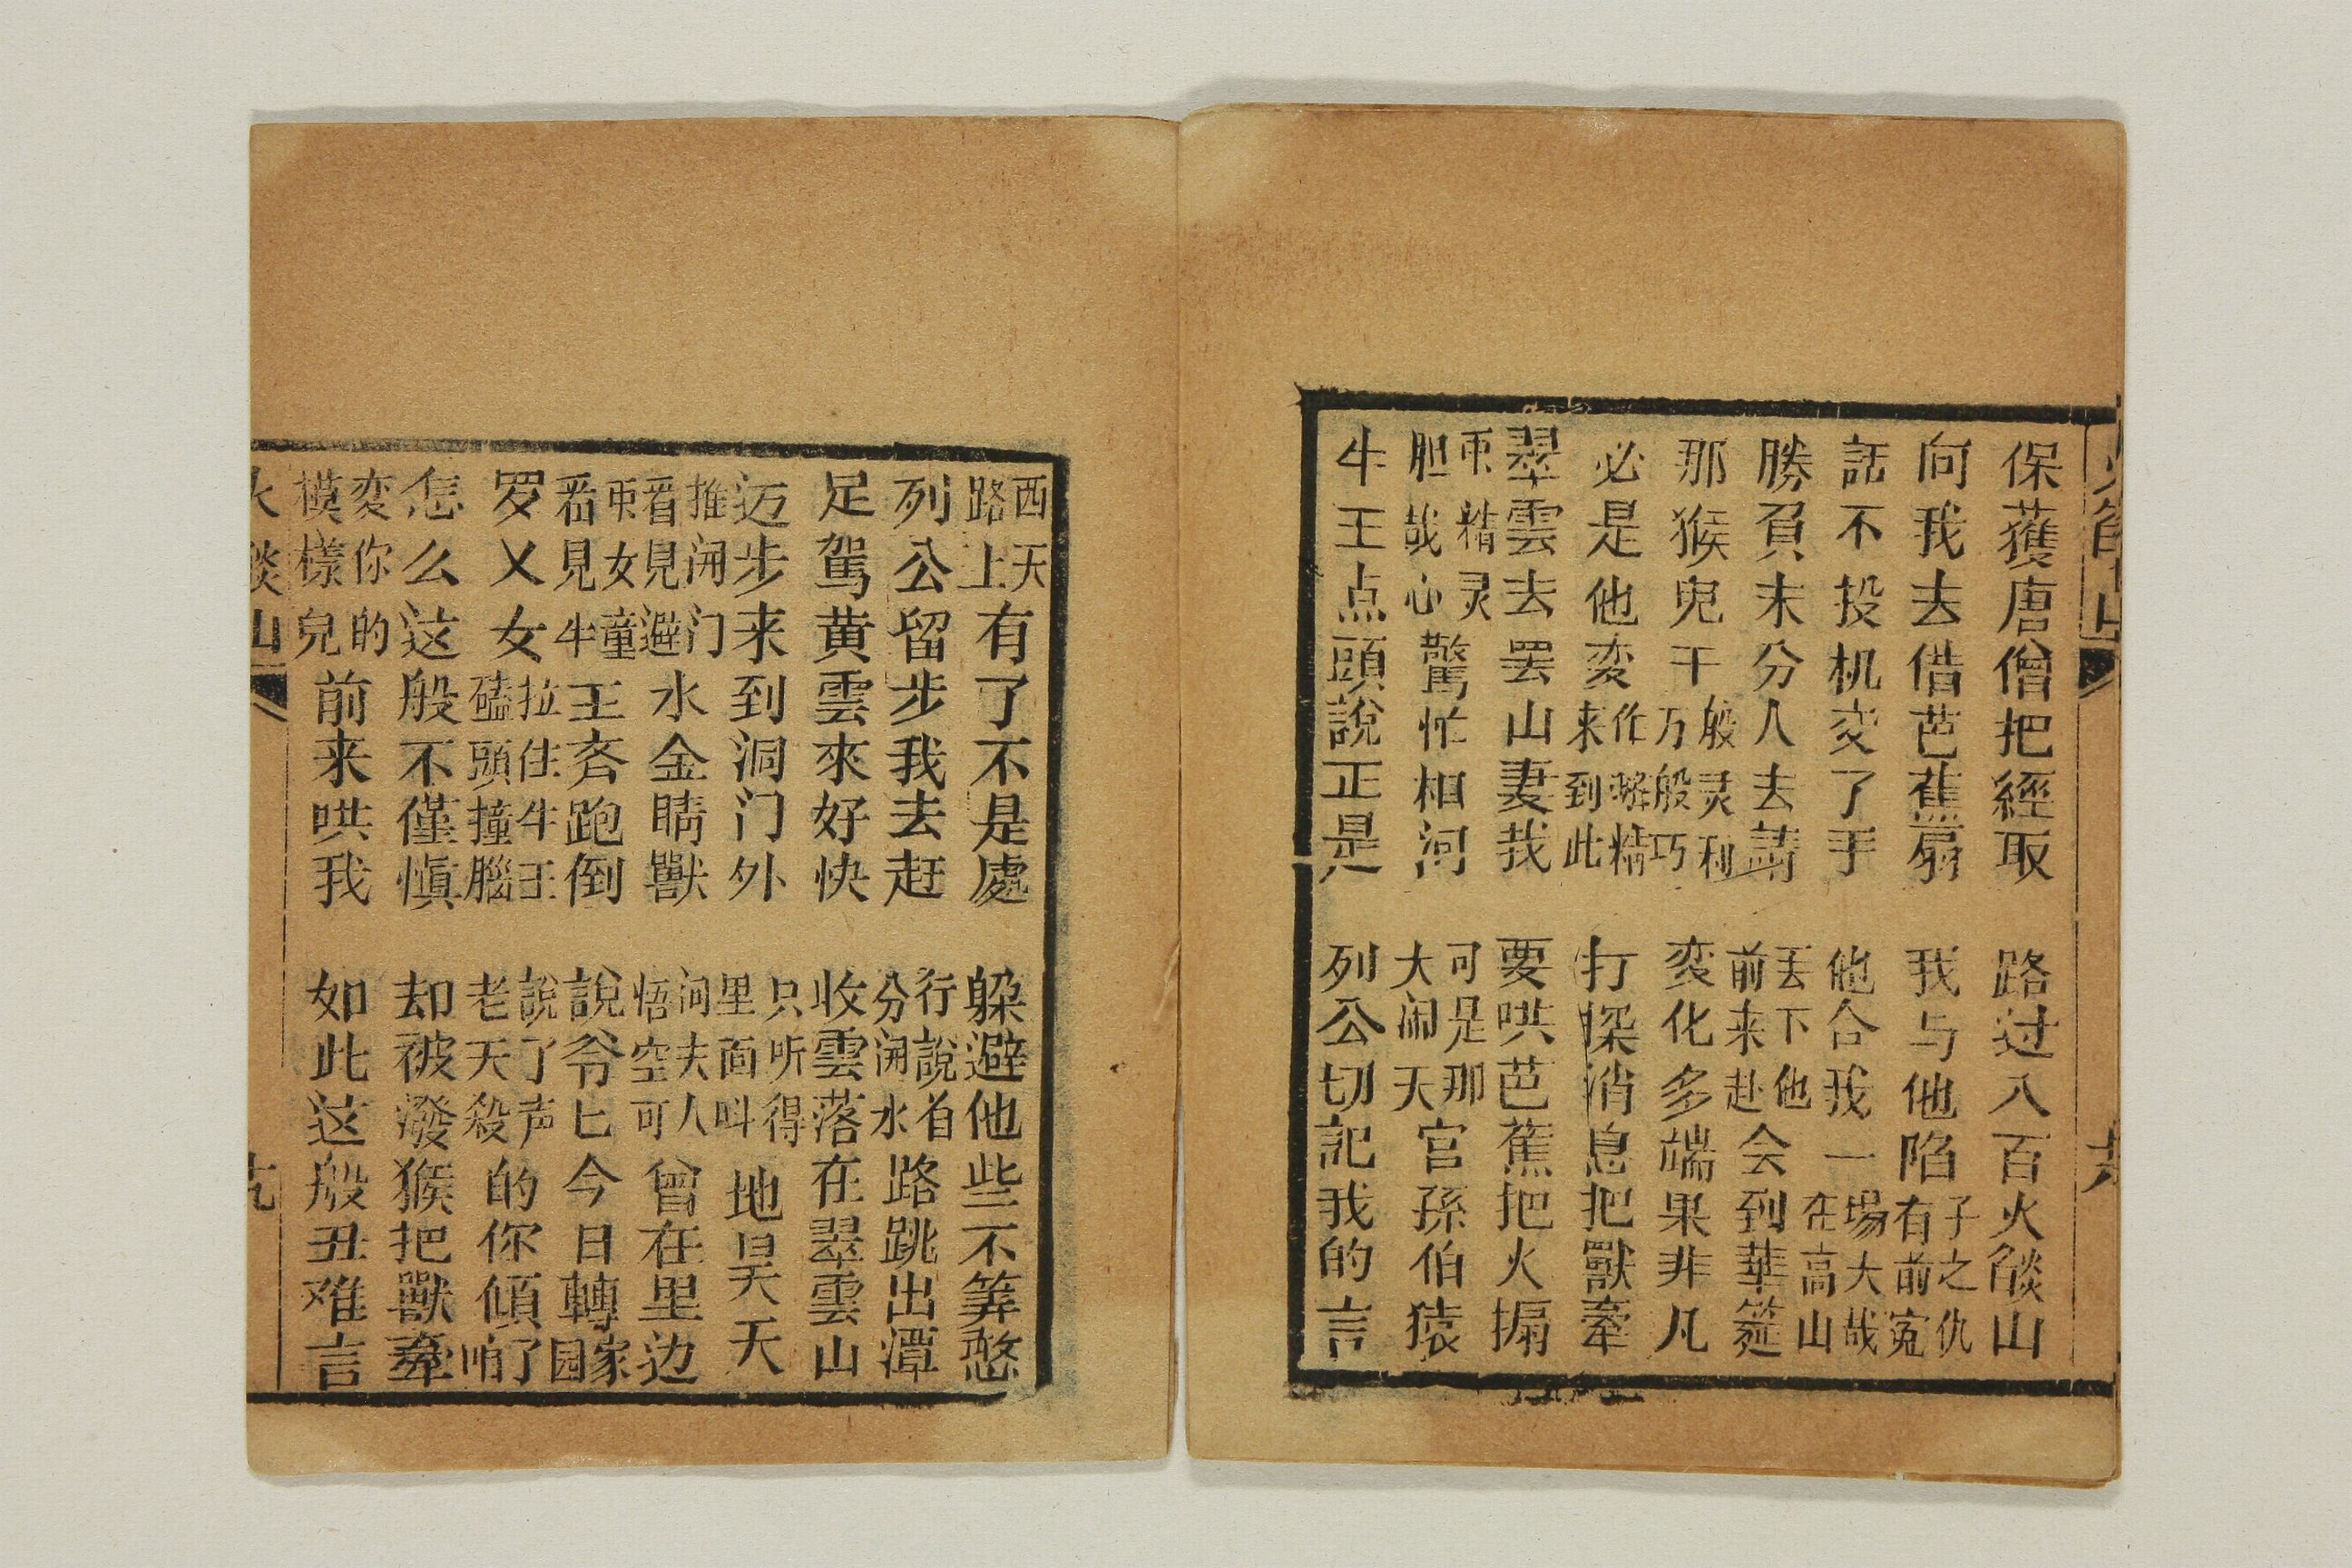 保獲唐僧把經取 路过八百火燄山
向我去借芭蕉扇 我与他陷子之仇有前寃
話不投机交了手 他合我一場大哉在高山
勝負未分人去請 丟下他前来赴会到華筵
那猴皃千般灵利万般巧 変化多端果非凡
必是他変作精来到此 打探消息把獸牽
翠雲去罢山妻我 要哄芭蕉把火搧
精灵胆哉心驚忙相问 可是那大闹天官孫伯猿
牛王点頭說正是 列公切記我的言
西天路上有了不是處 躲避他些不筭憨
列公留步我去赶 行說着分開水路跳出潭
足駕黄雲來好快 收雲落在翠雲山
迈步来到洞门外 只听得里面呌地昊天
推開门看見避水金睛獸 问夫人悟空可曾在里边
女童看見牛王齐跑倒 說爷匕今日轉家园
罗乂女拉住牛王磕頭撞腦 說了声老天殺的你傾了咱
怎么这般不僅慎 却被潑猴把獸牽
変你的模樣兒前来哄我 如此这般丑难言
火燄山